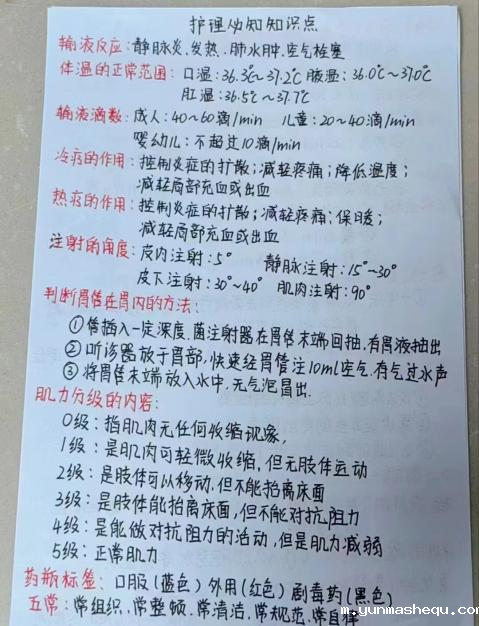 护理必知知识点
输液反应:静脉炎、发热、肺水肿、空气栓塞
体温的正常范围:口温:36.3℃~37.2℃ 腋温:36.0℃~37.0℃
肛温:36.5℃~37.7℃
输液滴数:成人:40~60滴/min 儿童:20~40滴/min
婴幼儿:不超过10滴/min
冷疗的作用:控制炎症的扩散;减轻疼痛;降低温度;
减轻局部充血或出血
热疗的作用:控制炎症的扩散;减轻疼痛;保暖;
减轻局部充血或出血
注射的角度:皮内注射:5° 静脉注射:15°~30°
皮下注射:30°~40° 肌肉注射:90°
判断胃管在胃内的方法:
①管插入一定深度.菌注射器在胃管末端回抽.有胃液抽出
②听诊器放于胃部,快速经胃管注10ml空气.有气过水声
③将胃管末端放入水中.无气泡冒出.
肌力分级的内容:
0级:指肌肉无任何收缩现象,
1级:是肌肉可轻微收缩,但无肢体运动
2级:是肢体可以移动,但不能抬离床面
3级:是肢体能抬离床面,但不能对抗阻力
4级:是能做对抗阻力的活动,但是肌力减弱
5级:正常肌力
药瓶标签:口服(蓝色)外用(红色)剧毒药(黑色)
五常:常组织,常整顿.常清洁,常规范.常自律
m.yunmashequ.com